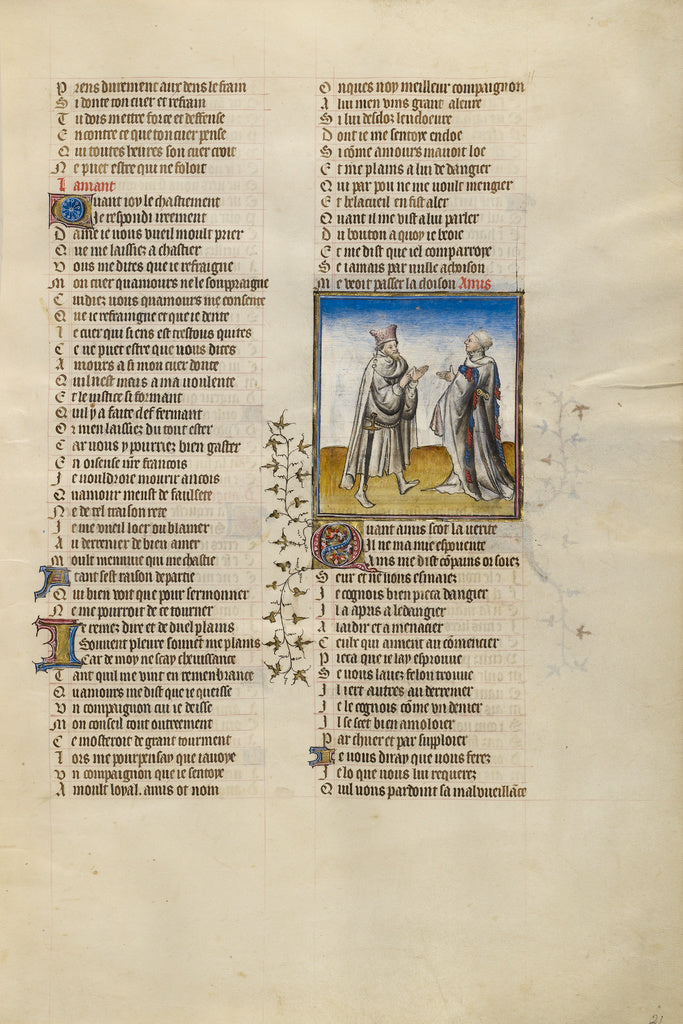 Prens durement aux dens le frain
Si donte ton cuer et refrain
Tu dois mettre force et deffense
Encontre ce que ton cuer pense
Qui toutes heures son cuer croit
Ne puet estre qui ne foloit
Lamant
Quant ioy le chastiement
Ie respondi ireement
Dame ie vous vueil moult prier
Que me laissiez a chastier
Vous me dites que ie refraigne
Mon cuer quamours ne le sonpraigne
Cuidiez vous quamours me consente
Que ie refraingne et que ie dente
Le cuer qui siens est trestous quites
Ce ne puet estre que vous dites
Amours a si mon cuer donte
Quil nest mais a ma voulente
Et le iustice si forment
Quil y a faite clef fermant
Or men laissiez du tout ester
Car vous y pourriez bien gaster
En oiseuse vire francois
Ie vouldroie mourir ancois
Quamour meust de faulsete
Ne de traison rete
Ie me vueil loer ou blamer
Au derrenier de bien amer
Moult mennuie qui me chastie
Atant sest raison departie
Qui bien voit que pour sermonner
Ne me pourroit de ce tourner
Ie remez dire et de duel plains
Souuent pleure souuent me plains
Car de moy ne scay cheuissance
Tant quil me vint en remembrance
Quamours me dist que ie queisse
Vn compaignon cui ie deisse
Mon conseil tout outreement
Ce mosteroit de grant tourment
Lors me pourpensay que iauoye
Vn compaignon que ie sentoye
A moult loyal. amis ot nom
Onques noy meilleur compaignon
A lui men vins grant aleure
Si lui desclos lencloeure
Dont ie me sentoye encloe
Si cōme amours mauoit loe
Et me plains a lui de dangier
Qui par pou ne me voult mengier
Et belacueil en fist aler
Quant il me vist a lui parler
Du bouton a quoy ie beoie
Et me dist que iel comparroye
Se iamais par nulle achoison
Me veoit passer la cloison Amis
Quant amis scot la verite
Il ne ma mie espouente
Ains me dist cōpains or soiez
Seur et ne vous esmaiez
Ie cognois bien pieca dangier
Il a apris a ledangier
A laidir et a menacier
Ceulx qui aiment au cōmencier
Pieca que ie lay esprouue
Se vous lauez felon trouue
Il iert autres au derrenier
Ie le cognois cōme vn denier
Il se scet bien amoloier
Par chuer et par supploier
Ie vous diray que vous ferez
Ie lo que vous lui requerez
Quil vous pardoint sa malvueillāce
21